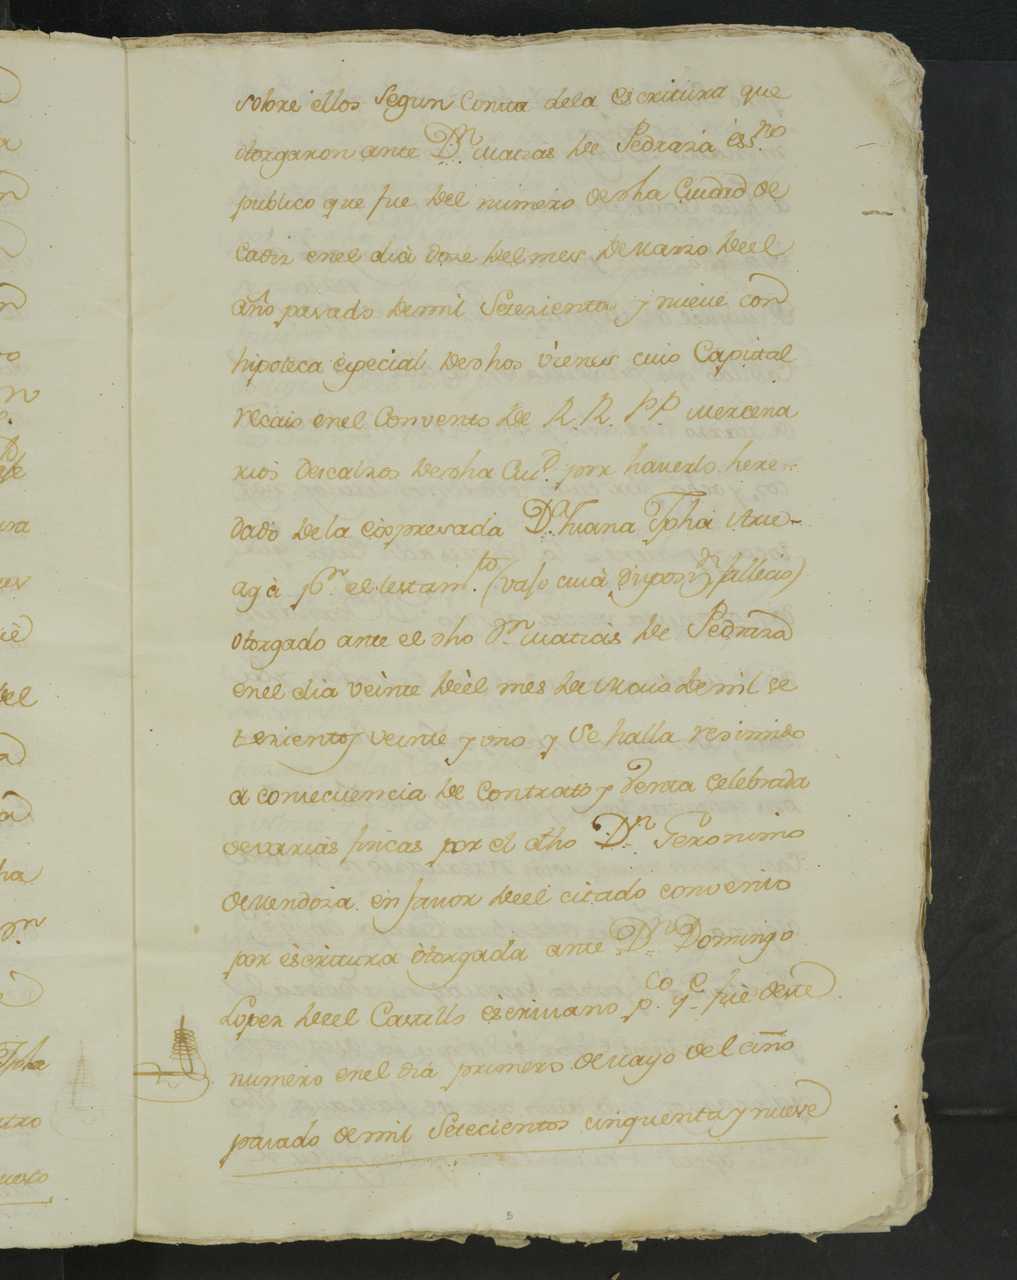 sobre ellos segun Consta dela escritura que
otorgaron ante Dn. Matias de Pedraza essno.
publico que fue del numero de dha Ciudad de
Cadiz enel dia doze del mes de Marzo deel
año pasado de mil Setezientos y nueve con
hipoteca especial de dhos vienes cuio Capital
recaio enel Convento de R.R. PP Mercena
rios Descalzos de dha Ciud. por haverlo here-
dado de la expresada Da. Juana Jpha
aga pr. el testamto. (vajo cuia disposn. fallecio)
otorgado ante el dho Dn. Matias de Pedraza
enel dia veinte deel mes de Maio de mil se
tezientos veinte y uno y se halla redimido
a consecuencia de Contrato y Venta celebrada
de varias fincas por el dho Dn. Geronimo
de Mendoza en favor deel citado convento
por escritura otorgada ante Dn. Domingo
Lopez deel Castillo escrivano pco. y e. fue de este
numero enel dia primero de Mayo del año
pasado de mil Setecientos cinquenta y nueve
5